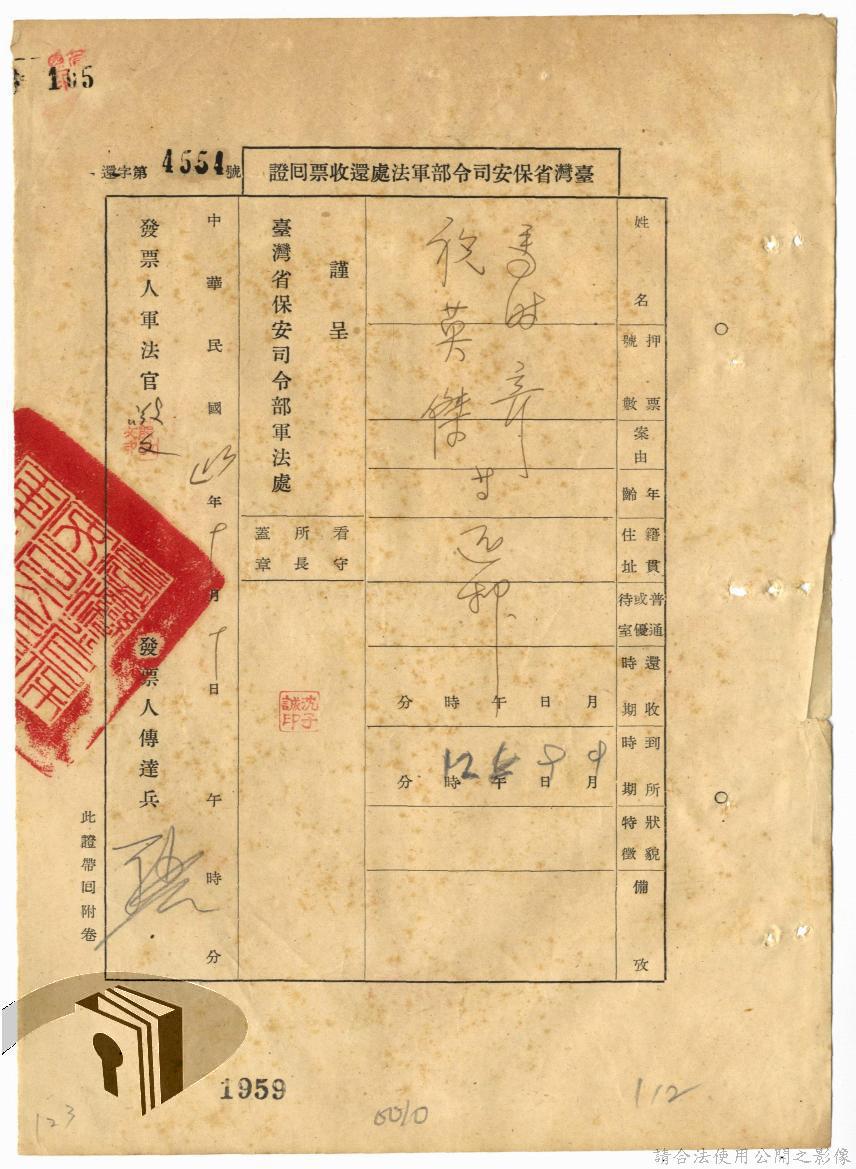 105
還字第4554號
臺灣省保安司令部軍法處還收票回證
姓名
押票號數
案由
年齡
籍貫住址
普通或優待室
還收時期
到所時期
狀貌特徵
備攷
馬時彥
祝英傑
廿
月日午時分
月日午時分
謹呈
臺灣省保安司令部軍法處
看守所長蓋章
沈子誠印
中華民國 年十月十日午時分
發票人軍法官
發票人傳達兵
此證帶回附卷
1959
123
6010
112
請合法使用公開之影像